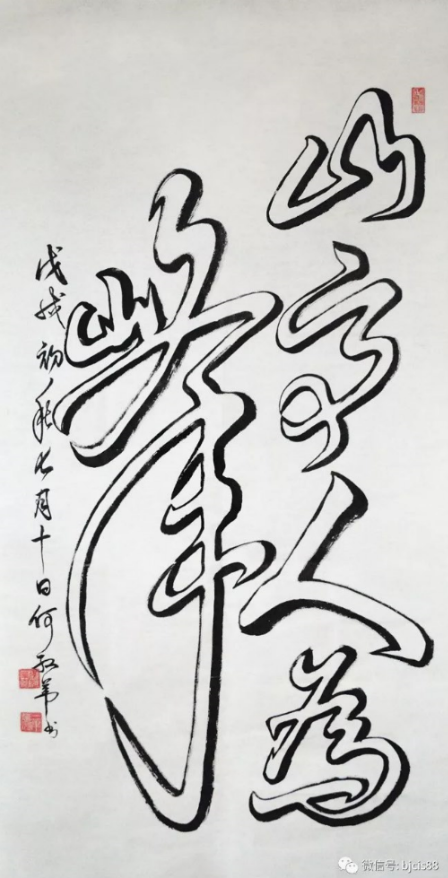 山高人為
峰
戊戌初秋七月十日何
微信号: bjcis88